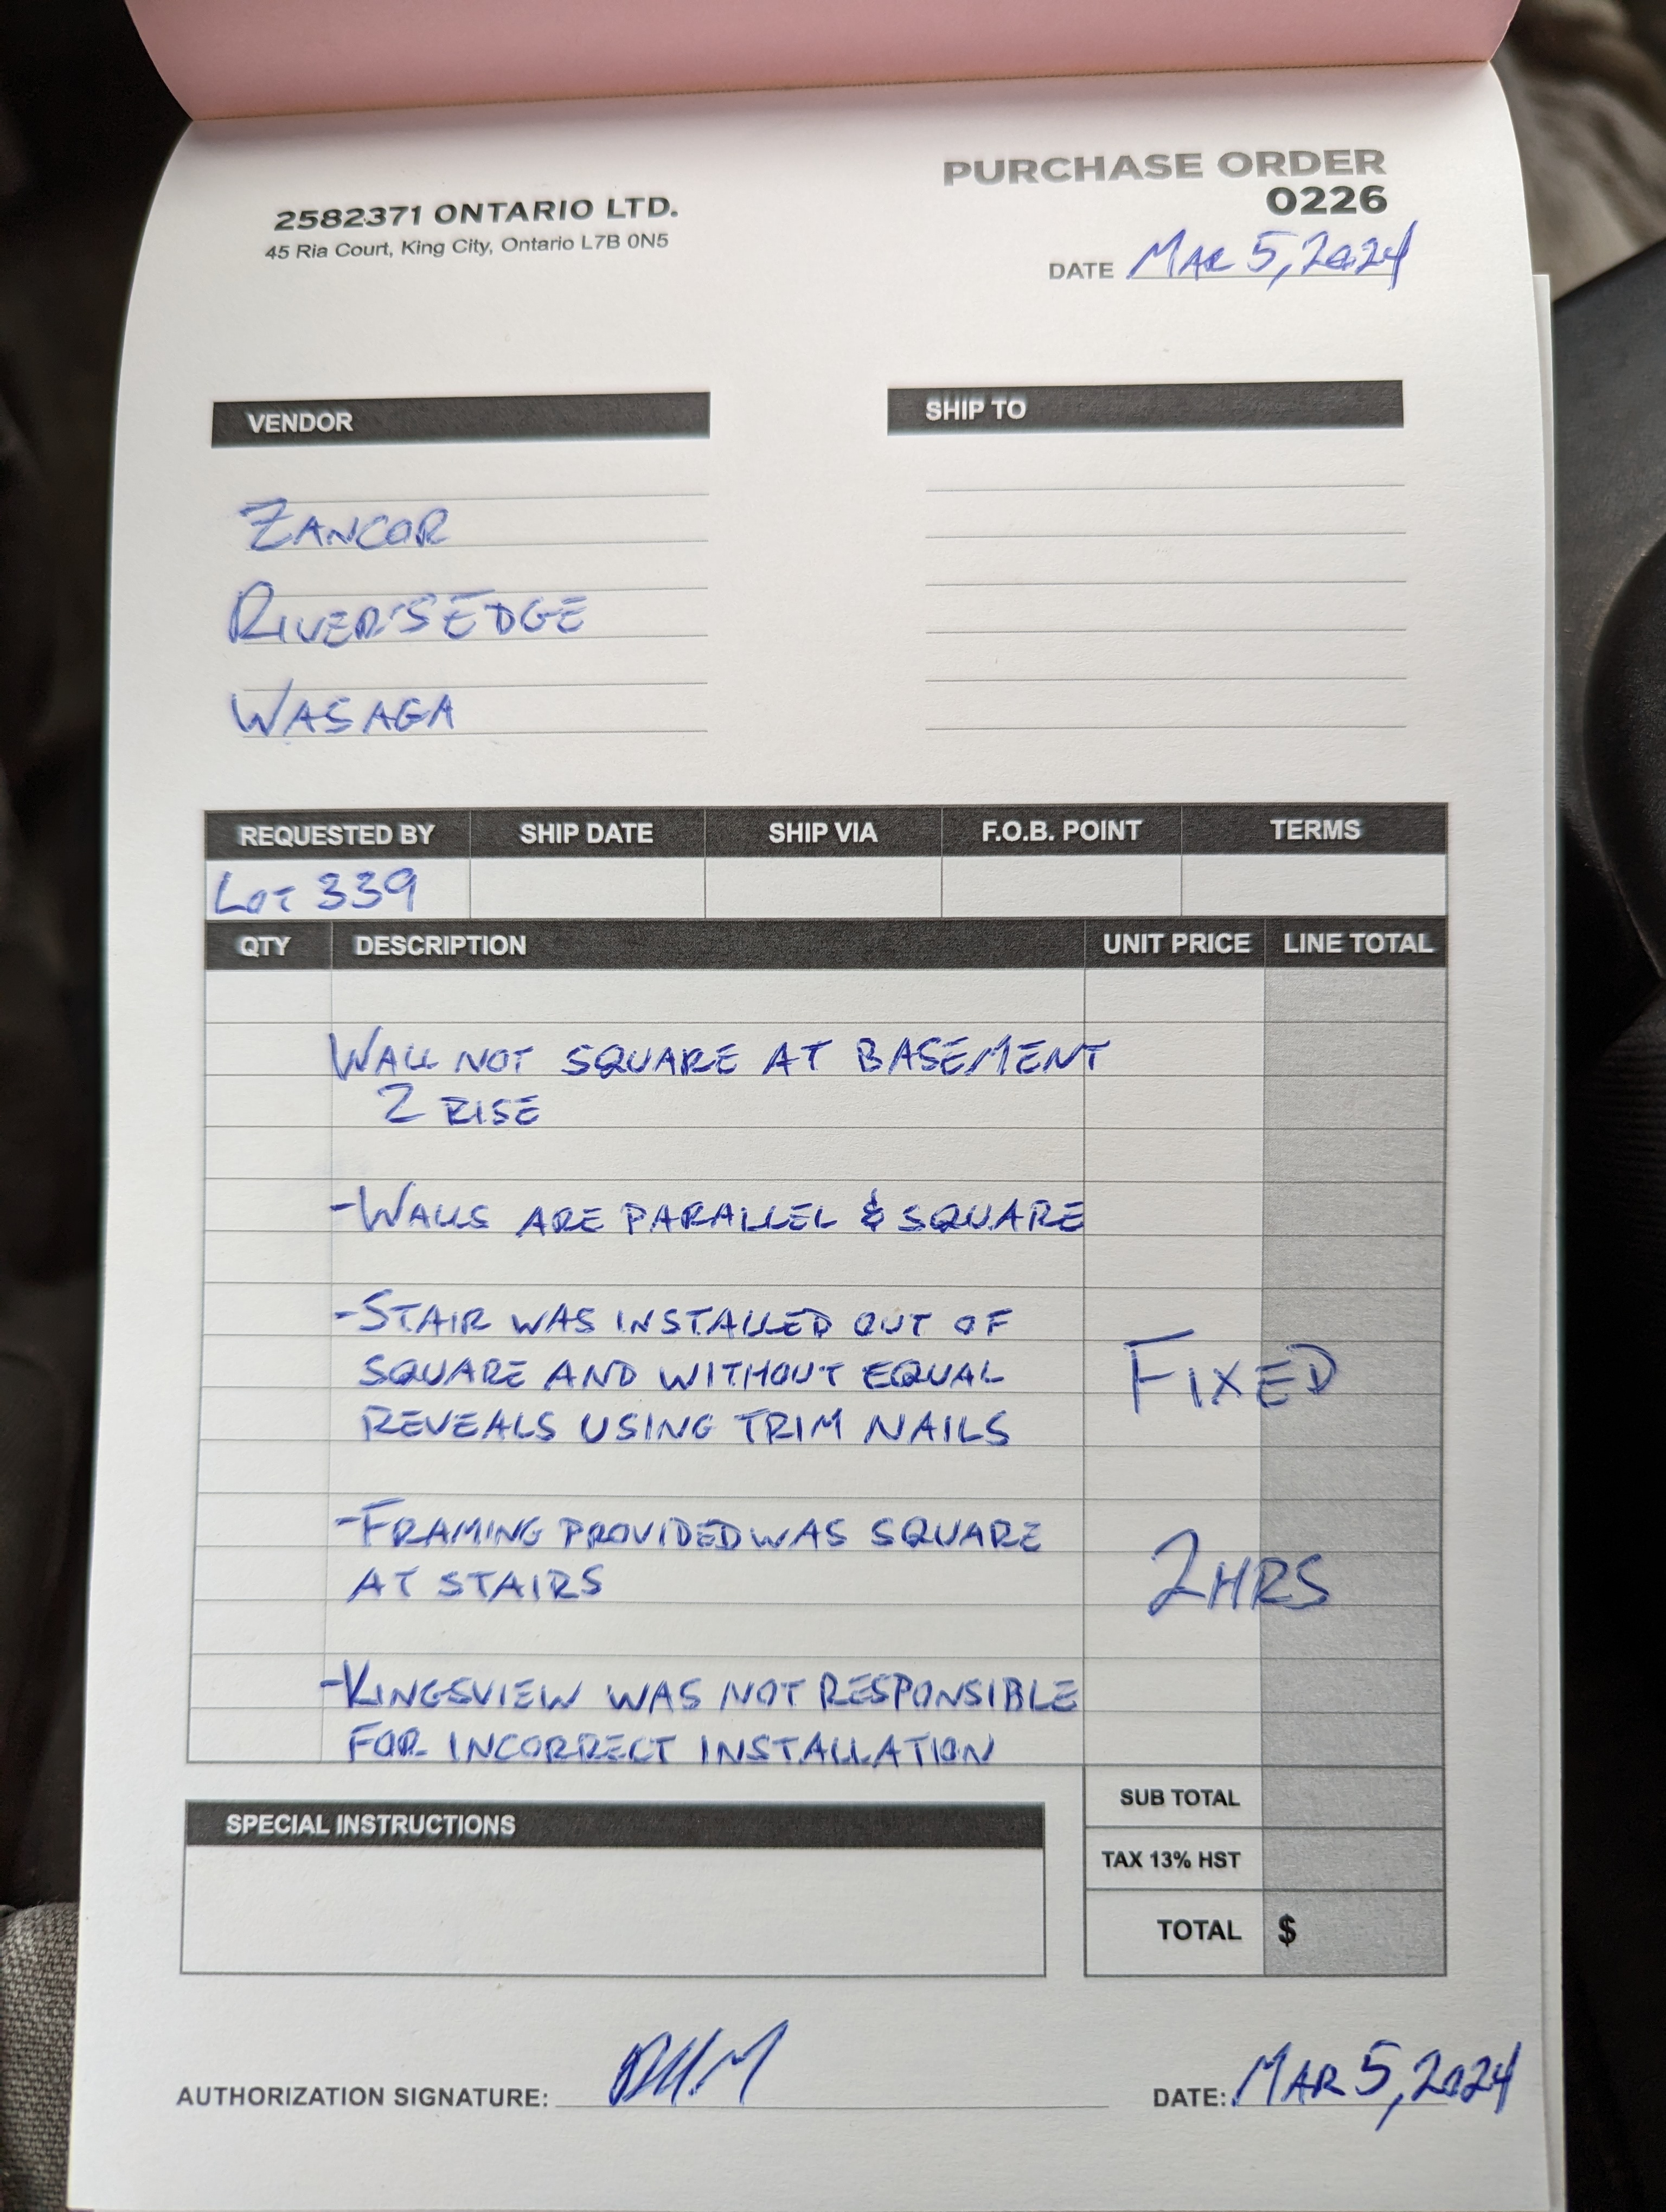 PURCHASE ORDER
0226
2582371 ONTARIO LTD.
45 Ria Court, King City, Ontario L7B 0N5
DATE MAR 5, 2024
VENDOR
SHIP TO
ZANCOR
RIVER'S EDGE
WASAGA
REQUESTED BY SHIP DATE SHIP VIA F.O.B. POINT TERMS
LOT 339
QTY DESCRIPTION UNIT PRICE LINE TOTAL
WALL NOT SQUARE AT BASEMENT
2 RISE
-WALLS ARE PARALLEL & SQUARE
-STAIR WAS INSTALLED OUT OF
SQUARE AND WITHOUT EQUAL
REVEALS USING TRIM NAILS
FIXED
-FRAMING PROVIDED WAS SQUARE
AT STAIRS
2 HRS
-KINGSVIEW WAS NOT RESPONSIBLE
FOR INCORRECT INSTALLATION
SUB TOTAL
SPECIAL INSTRUCTIONS
TAX 13% HST
TOTAL $
AUTHORIZATION SIGNATURE:
DATE: MAR 5, 2024